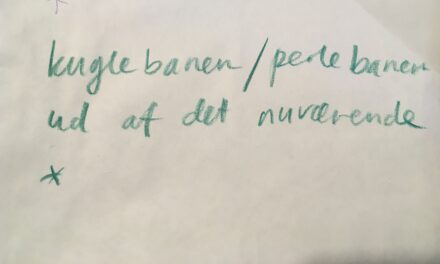 *
kuglebanen/perlebanen
ud af det nuværende
*